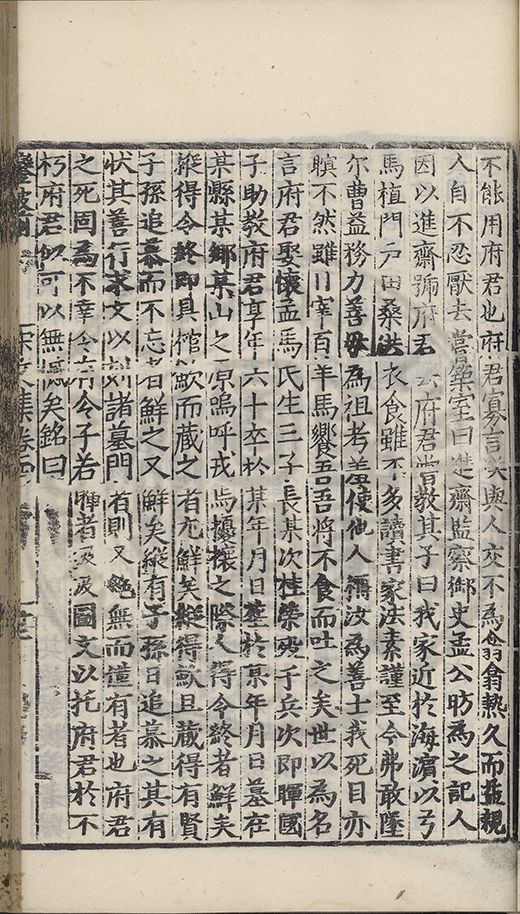 不能用府君也府君寡言笑與人交不為翕翕熱久而益親
人自不忍厭去嘗築室曰進齋監察御史孟公昉為之記人
因以進齋號府君云府君嘗教其子曰我家近於海濵以弓
馬植門戶田桑供衣食雖不多讀書家法素謹至今弗敢墜
尔曹益務力善毋為祖考羞使他人稱汝為善士我死目亦
瞑不然雖日宰百羊馬饗吾吾將不食而吐之矣世以為名
言府君娶懷孟馬氏生三子長某次桂榮歿于兵次即暉國
子助教府君享年六十卒於某年月日塟於某年月日墓在
某縣某鄉某山之原嗚呼戎馬擾攘之際人得令終者鮮矣
縱得令終即具棺歛而藏之者尤鮮矣縱得歛且藏得有賢
子孫追慕而不忘者鮮之又鮮矣縱有子孫日追慕之其有
状其善行求文以刻諸墓門者則又絶無而僅有者也府君
之死固為不幸今有令子若暉者汲汲圖文以托府君於不
朽府君似可以無憾矣銘曰